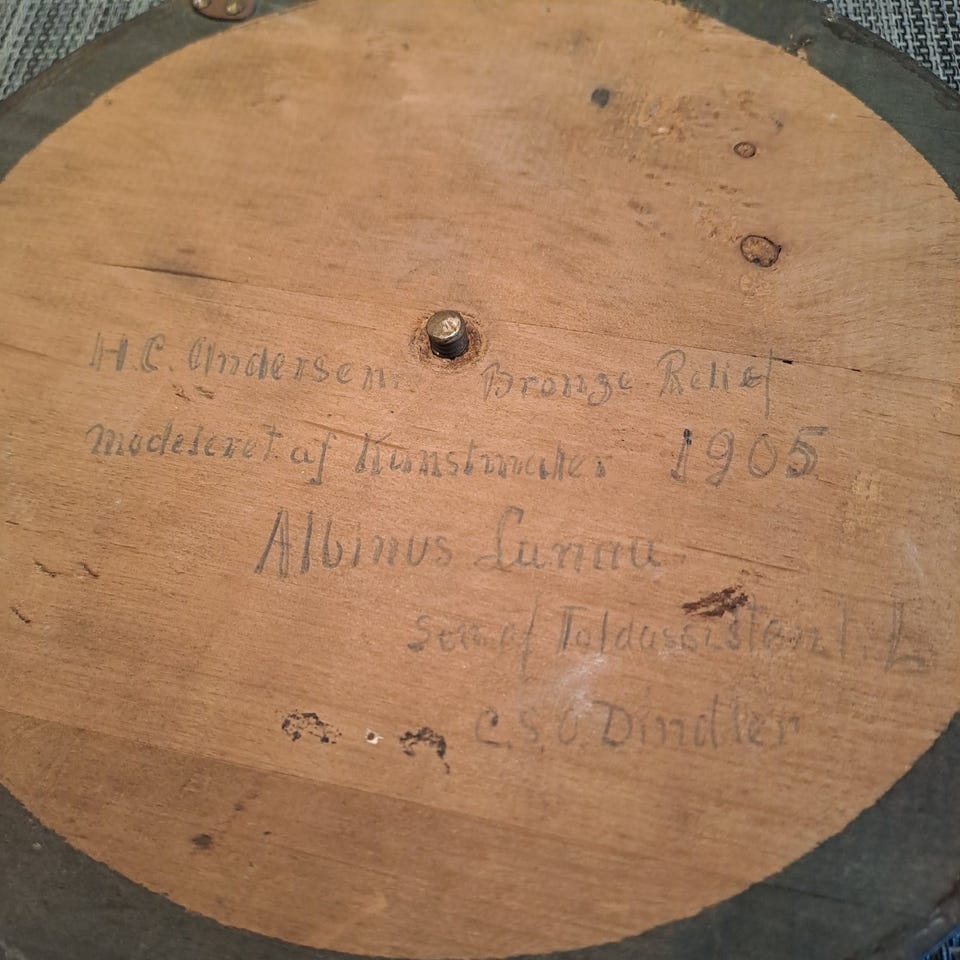 H.C. Andersen. Bronze Relief
modeleret af Kunstmaler 1905
Albinus Lunau
søn af Toldassistent. L
C.S.O. Dindler